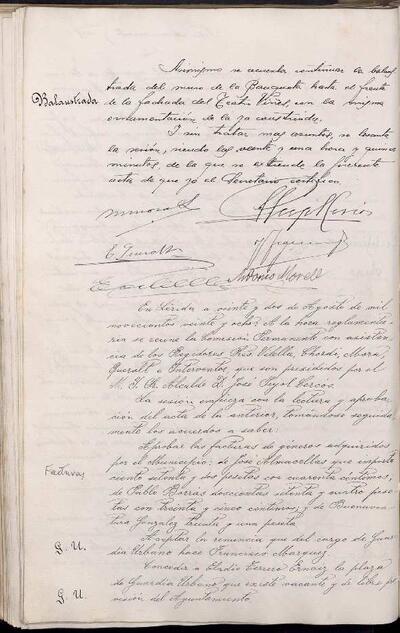 Asimismo se acuerda continuar la balaus
trada del muro de la Banqueta hasta el frente
Balaustrada
de la fachada del Teatro Viñes, con la misma
ornamentación de la ya construida.
I sin tratar mas asuntos, se levanta
la sesión, siendo las veinte y una hora y quince
minutos, de la que se extiende la presente
acta de que yo el Secretario certifico.
E. Queralt
Antonio Morell
En Lérida a veinte y dos de Agosto de mil
novecientos veinte y ocho: A la hora reglamenta-
ria se reune la Comisión Permanente con asisten-
cia de los Regidores Vilella, Mora,
Queralt e Interventor, que son presididos por el
M. I. Sr. Alcalde D. José Pujol Cercós.
La sesión empieza con la lectura y aproba-
ción del acta de la anterior, tomándose seguida-
mente los acuerdos a saber:
Facturas
Aprobar las facturas de géneros adquiridos
por el Municipio: de José Almacellas que importa
ciento setenta y dos pesetas con cuarenta céntimos,
de Pablo Barras doscientas setenta y cuatro pese-
tas con treinta y cinco céntimos, y de Buenaven-
tura Gonzalez treinta y una peseta.
G. U.
Aceptar la renuncia que del cargo de Guar-
dia Urbano hace Francisco Marquez.
Conceder a Eladio Ferrero la plaza
G. U.
de Guardia Urbano, que existe vacante y de libre pro-
visión del Ayuntamiento.